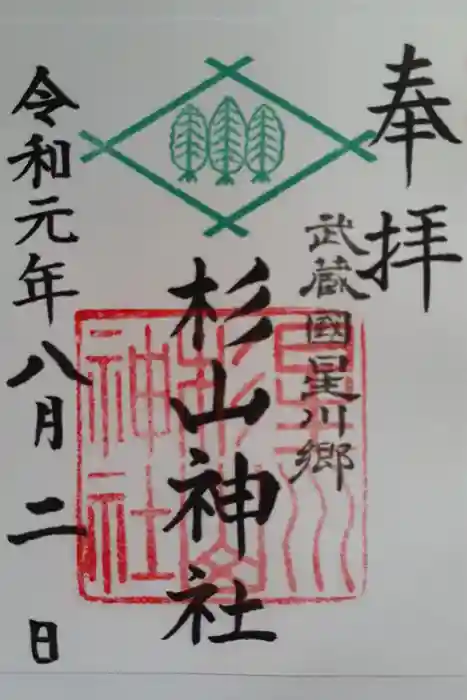 奉拝
武蔵國星川郷
杉山神社
令和元年八月二日
星川杉山神社